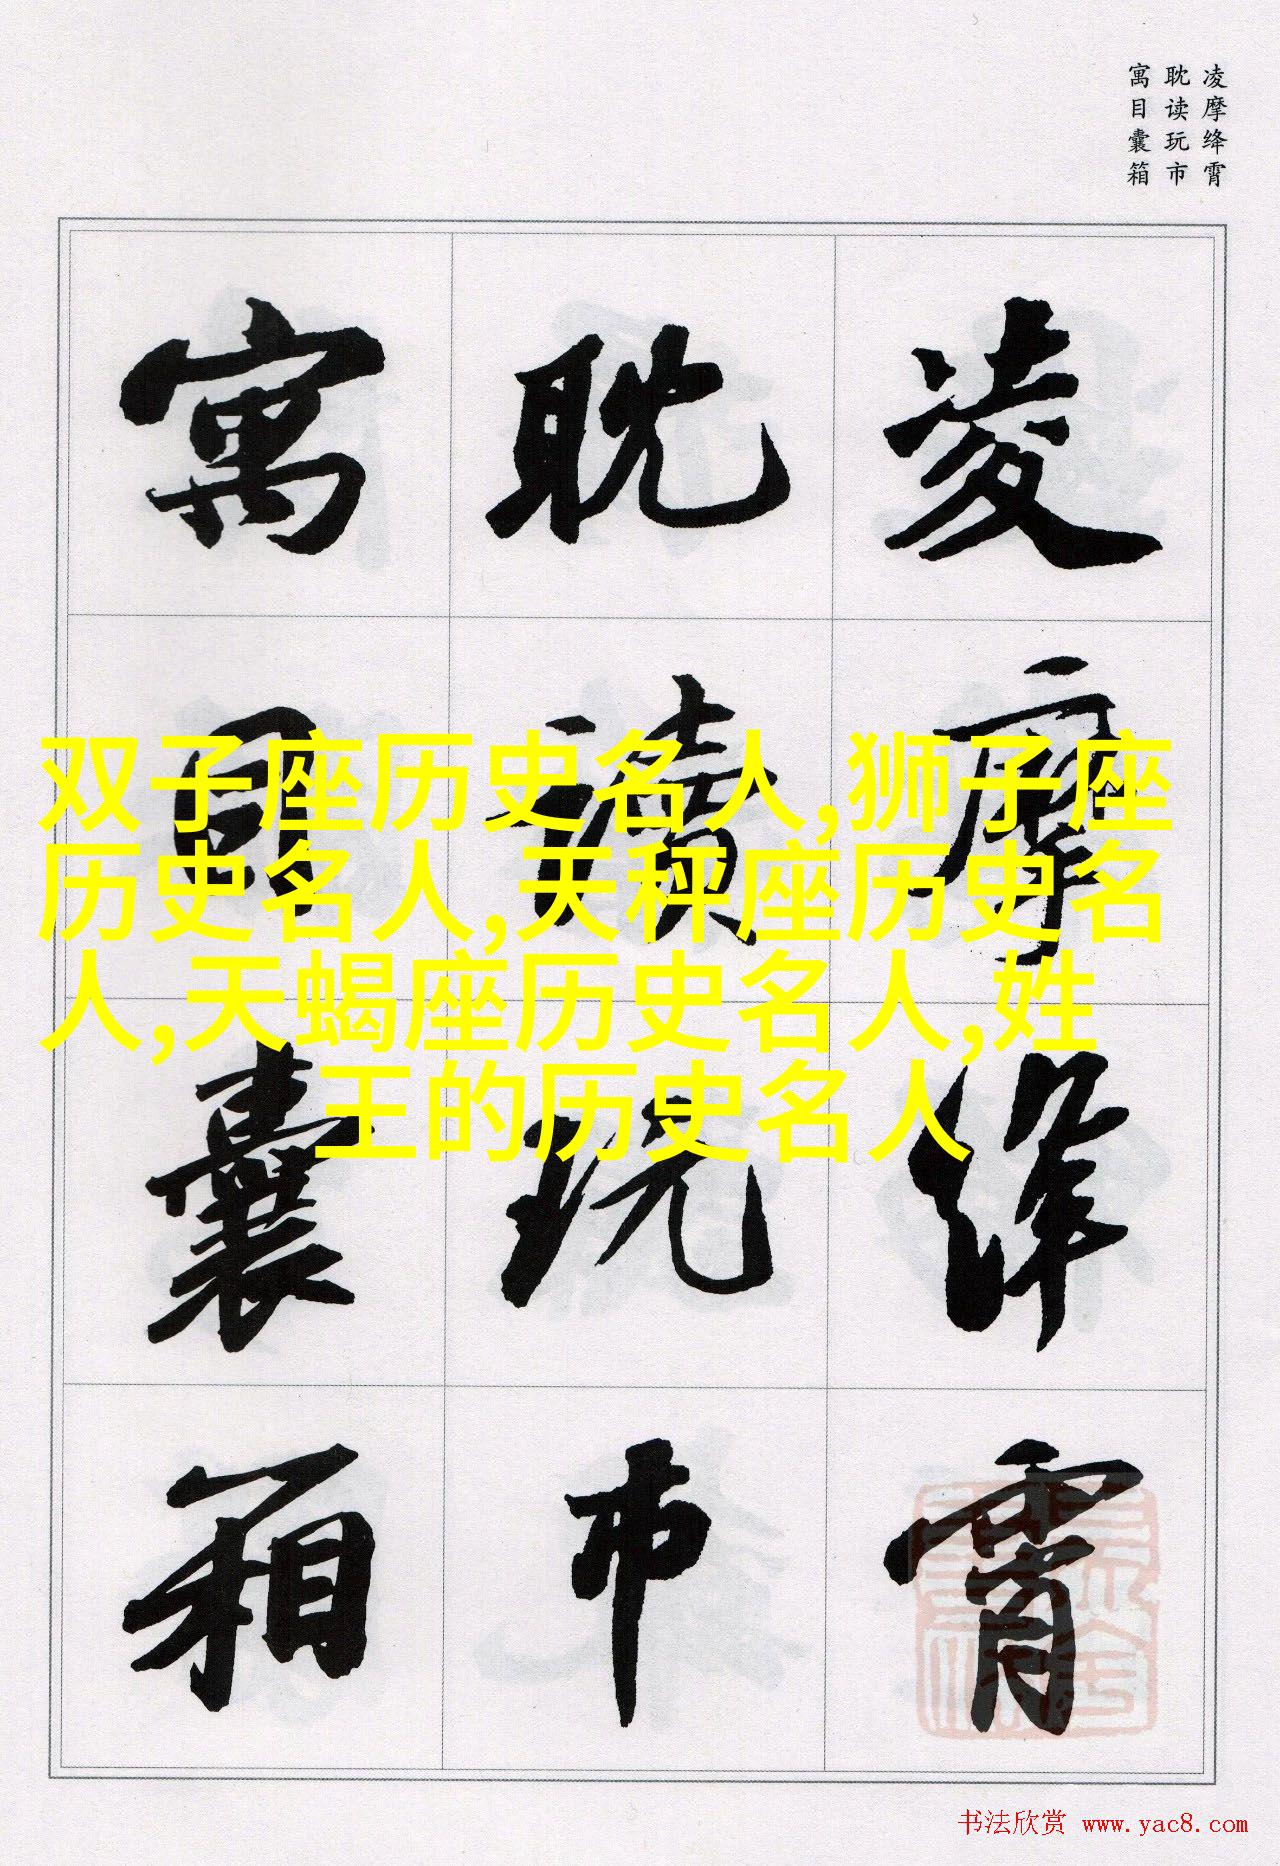 凌摩绛霄
耽读玩市
寓目囊箱
凌摩绛霄
耽讀玩市
寓目囊箱
双子座历史名人,狮子座
历史名人,天秤座历史名
人,天蝎座历史名人,姓
王的历史名人
书法欣赏 www.yac8.com